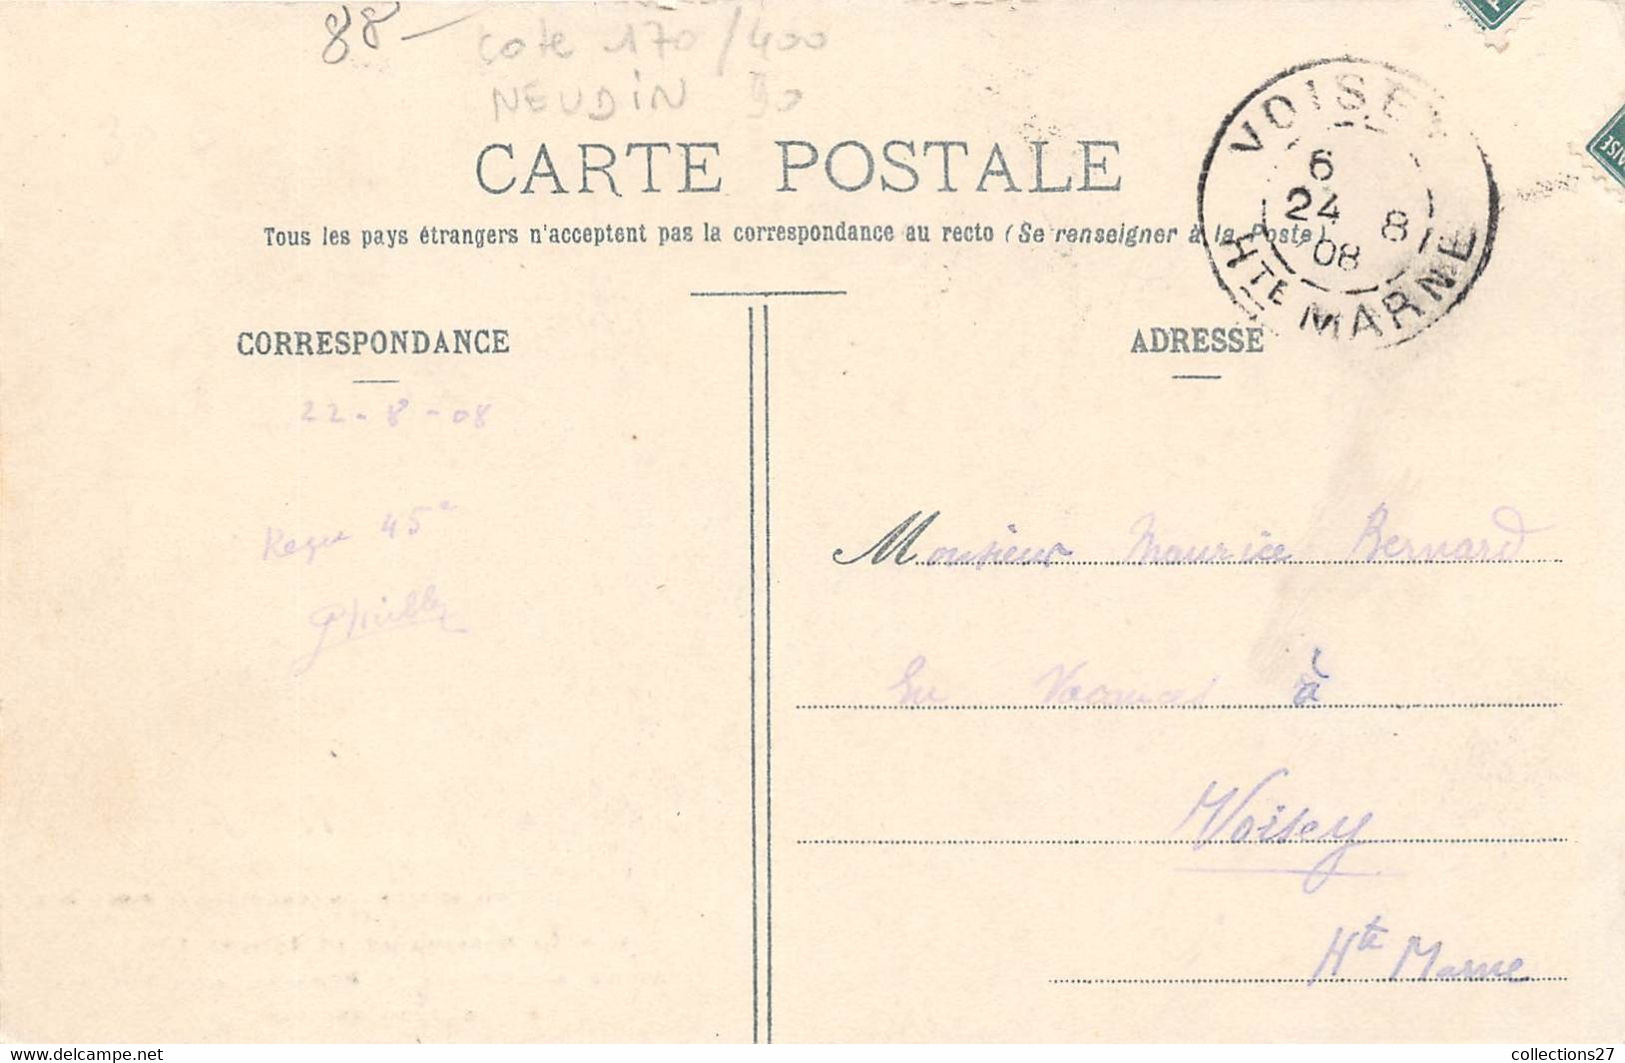 88-
cote 170/400
NEUDIN 90
CARTE POSTALE
Tous les pays étrangers n'acceptent pas la correspondance au recto (Se renseigner à la Poste)
VOISEY
6
24 8
08
HTE MARNE
CORRESPONDANCE
22-8-08
45e
ADRESSE
Monsieur Maurice Bernard
En Vacances à
Voisey
Hte Marne
delcampe.net
collections27